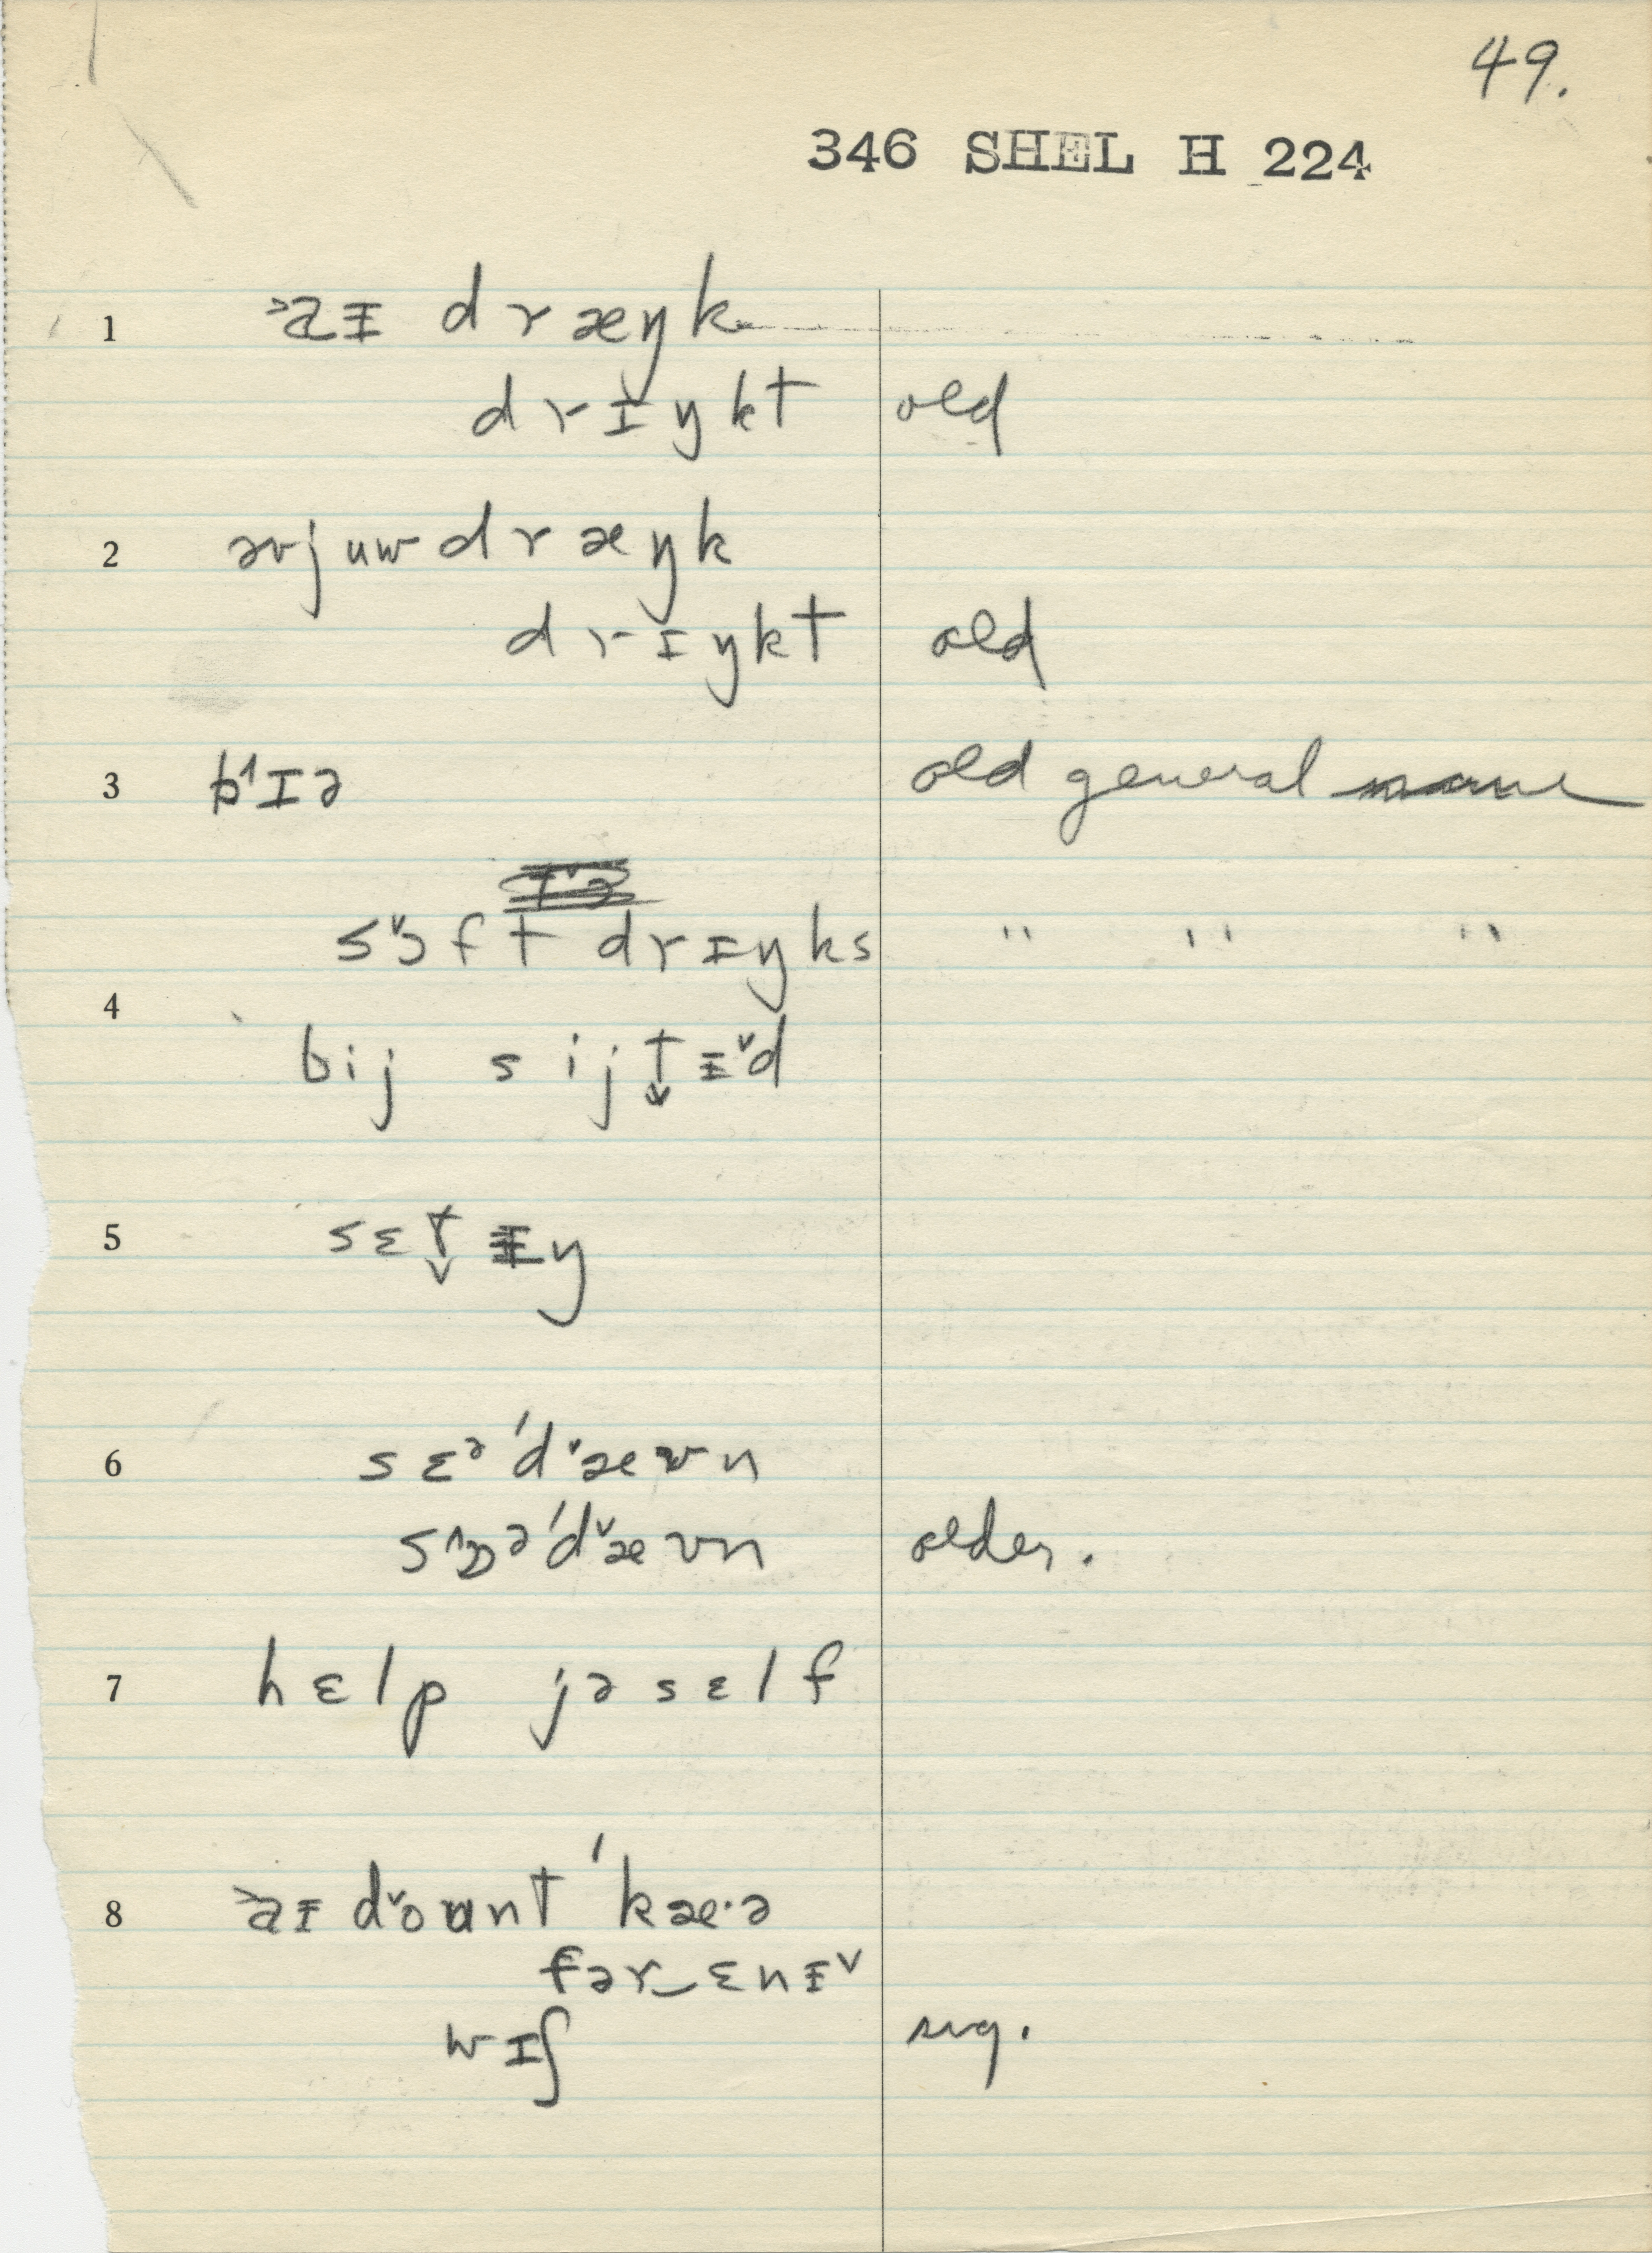 49.
346 SHEL H 224
1 ˃aɪ dræŋk
drɪŋkt old
2 əvjuw dræŋk
drɪŋkt old
3 b˄ɪə old general name
s˅ɔft drɪŋks " " "
4 bij sijt̬ɪ˅d
5 sɛt̬ɪŋ
6 sɛᵊˈd˅æʊn
s˄ɒəˈd˅æʊn older.
7 hɛlp jəsɛlf
8 ˃aɪ d˅oʊnt ˈkæ·ə
fər‿ɛnɪ˅
wɪʃ sug.